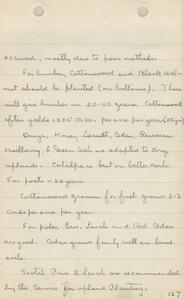 occurred, mostly due to poor methods.
For lumber, Cottonwood and Black Wal-
nut should be planted (on bottoms). These
will give lumber in 20-50 years. Cottonwood
often yields B.M. per acre per year
Osage, Honey Locust, Cedar, Russian
Mulberry, & Green Ash are adapted to dry
uplands. Catalpa is best on better soils.
For posts - 20 years.
Cottonwood grown for fuel grows 2-3
cords per acre per year.
For poles, Eur. Larch and Red Cedar
are good. Cedar grows fairly well on some
soils.
Scotch Pine & Larch are recommended
by the Service for Upland Planting.
167